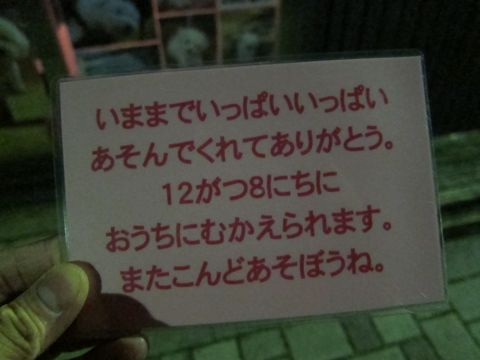 いままでいっぱいいっぱい
あそんでくれてありがとう。
12がつ8にちに
おうちにむかえられます。
またこんどあそぼうね。